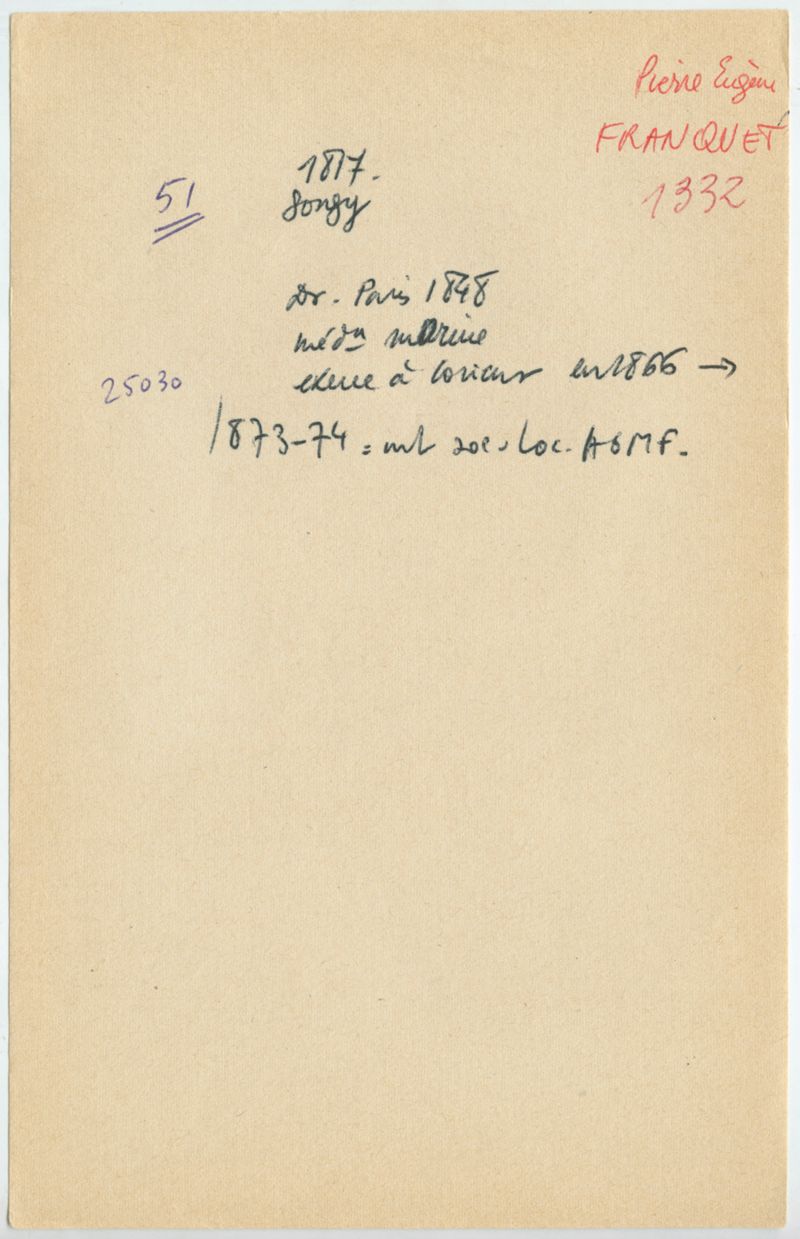 Pierre Eugène
FRANQUET
1332
1817.
51
Songy
Dr. Paris 1848
méd.n marine
exerce à Lorient en 1866 →
25030
1873-74 = mb soc. Loc. AGMF.